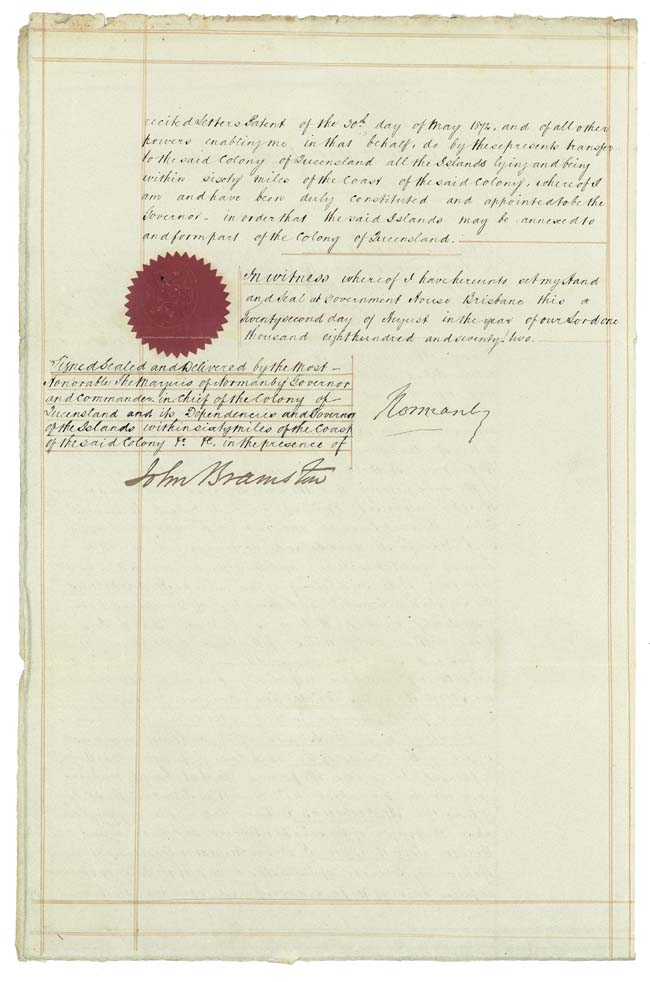 recited Letters Patent of the 30th day of May 1872, and of all other
powers enabling me in that behalf, do by these presents transfer
to the said Colony of Queensland all the Islands lying and being
within sixty miles of the Coast of the said Colony, whereof I
am and have been duly constituted and appointed to be the
Governor – in order that the said Islands may be annexed to
and form part of the Colony of Queensland.
In witness whereof I have hereunto set my Hand
and Seal at Government House Brisbane this a
Twenty second day of August in the year of our Lord one
thousand eight hundred and seventy two.
Signed Sealed and Delivered by the Most –
Honorable The Marquis of Normanby Governor
and Commander in Chief of the Colony of –
Queensland and its Dependencies and Governor
of the Islands within sixty miles of the Coast
of the said Colony &c. &c. in the presence of
Normanby
John Bramston